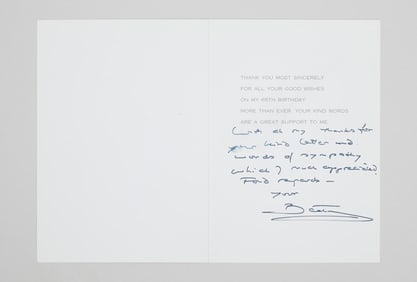 THANK YOU MOST SINCERELY
FOR ALL YOUR GOOD WISHES
ON MY 65TH BIRTHDAY
MORE THAN EVER YOUR KIND WORDS
ARE A GREAT SUPPORT TO ME
With all my thanks for
your kind letter and
words of sympathy
which I much appreciated
Fond regards —
your